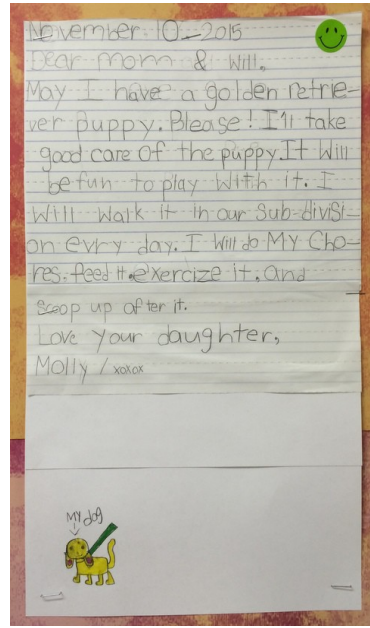 November 10-2015
Dear mom & Will,
May I have a golden retrie-
ver puppy. Please! I'll take
good care of the puppy. It will
be fun to play with it. I
will walk it in our sub-divisi-
on evry day. I will do my cho-
res. feed it. exercize it. and
scoop up after it.
Love your daughter,
Molly / xoxox
my dog